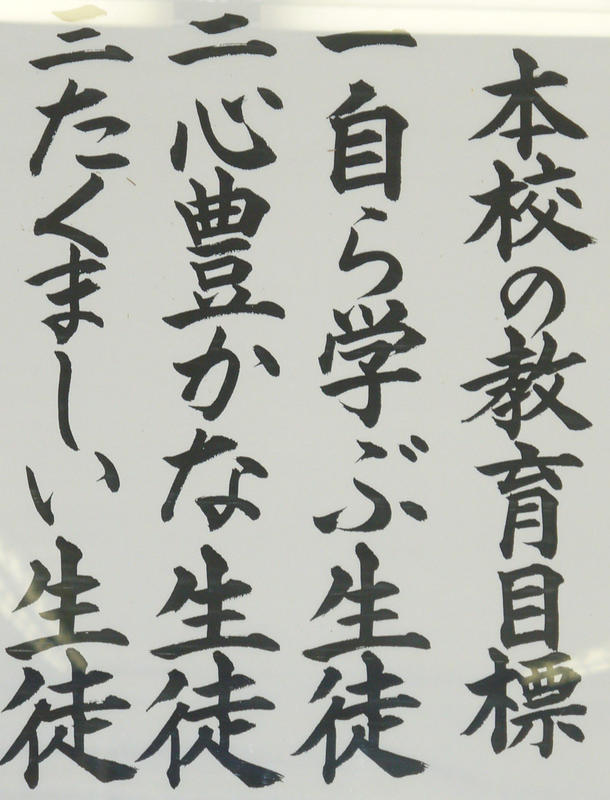 本校の教育目標
一自ら学ぶ生徒
二心豊かな生徒
三たくましい生徒